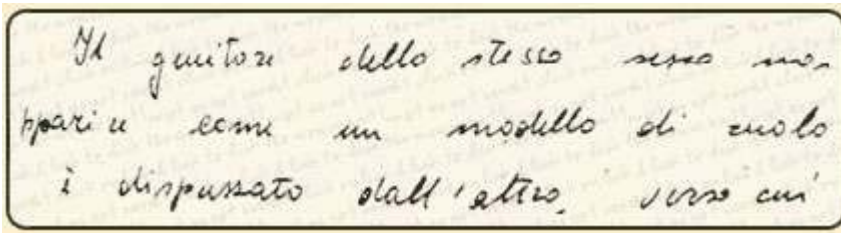 Il genitore dello stesso sesso non
appari e come un modello di ruolo
è disprezzato dall'altro, verso cui